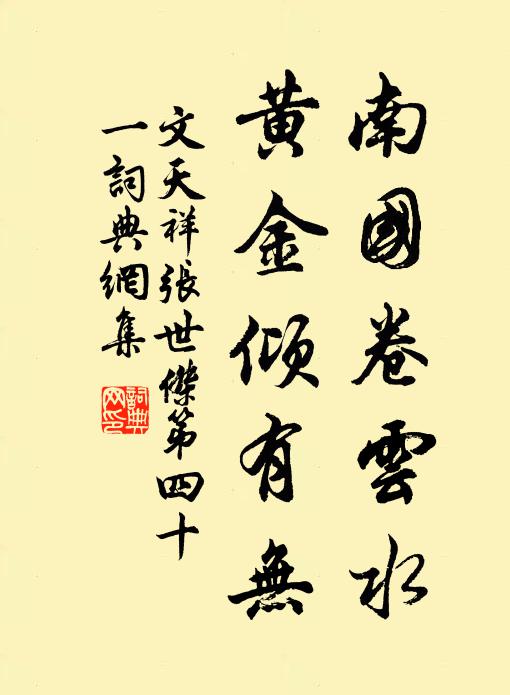 南國卷雲水
黃金傾有無
文天祥張世傑第四十
一詞典網集
詞典网印